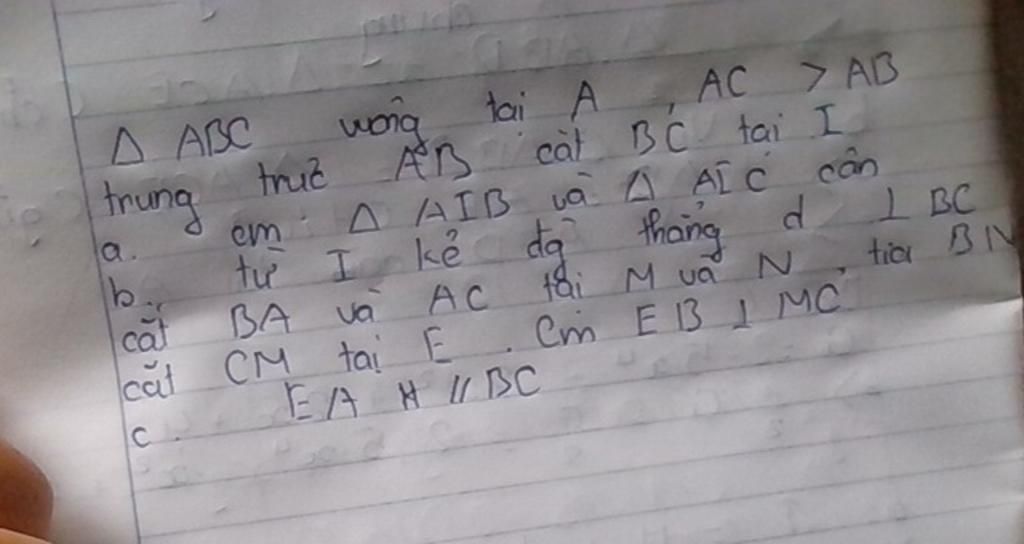 Δ ABC vuông tại A , AC > AB
trung trực AB cắt BC tại I
a. cm Δ AIB và Δ AIC cân
b. từ I kẻ đg thẳng d ⊥ BC
cắt BA và AC tại M và N , tia BN
cắt CM tại E . Cm EB ⊥ MC
c. EA // BC